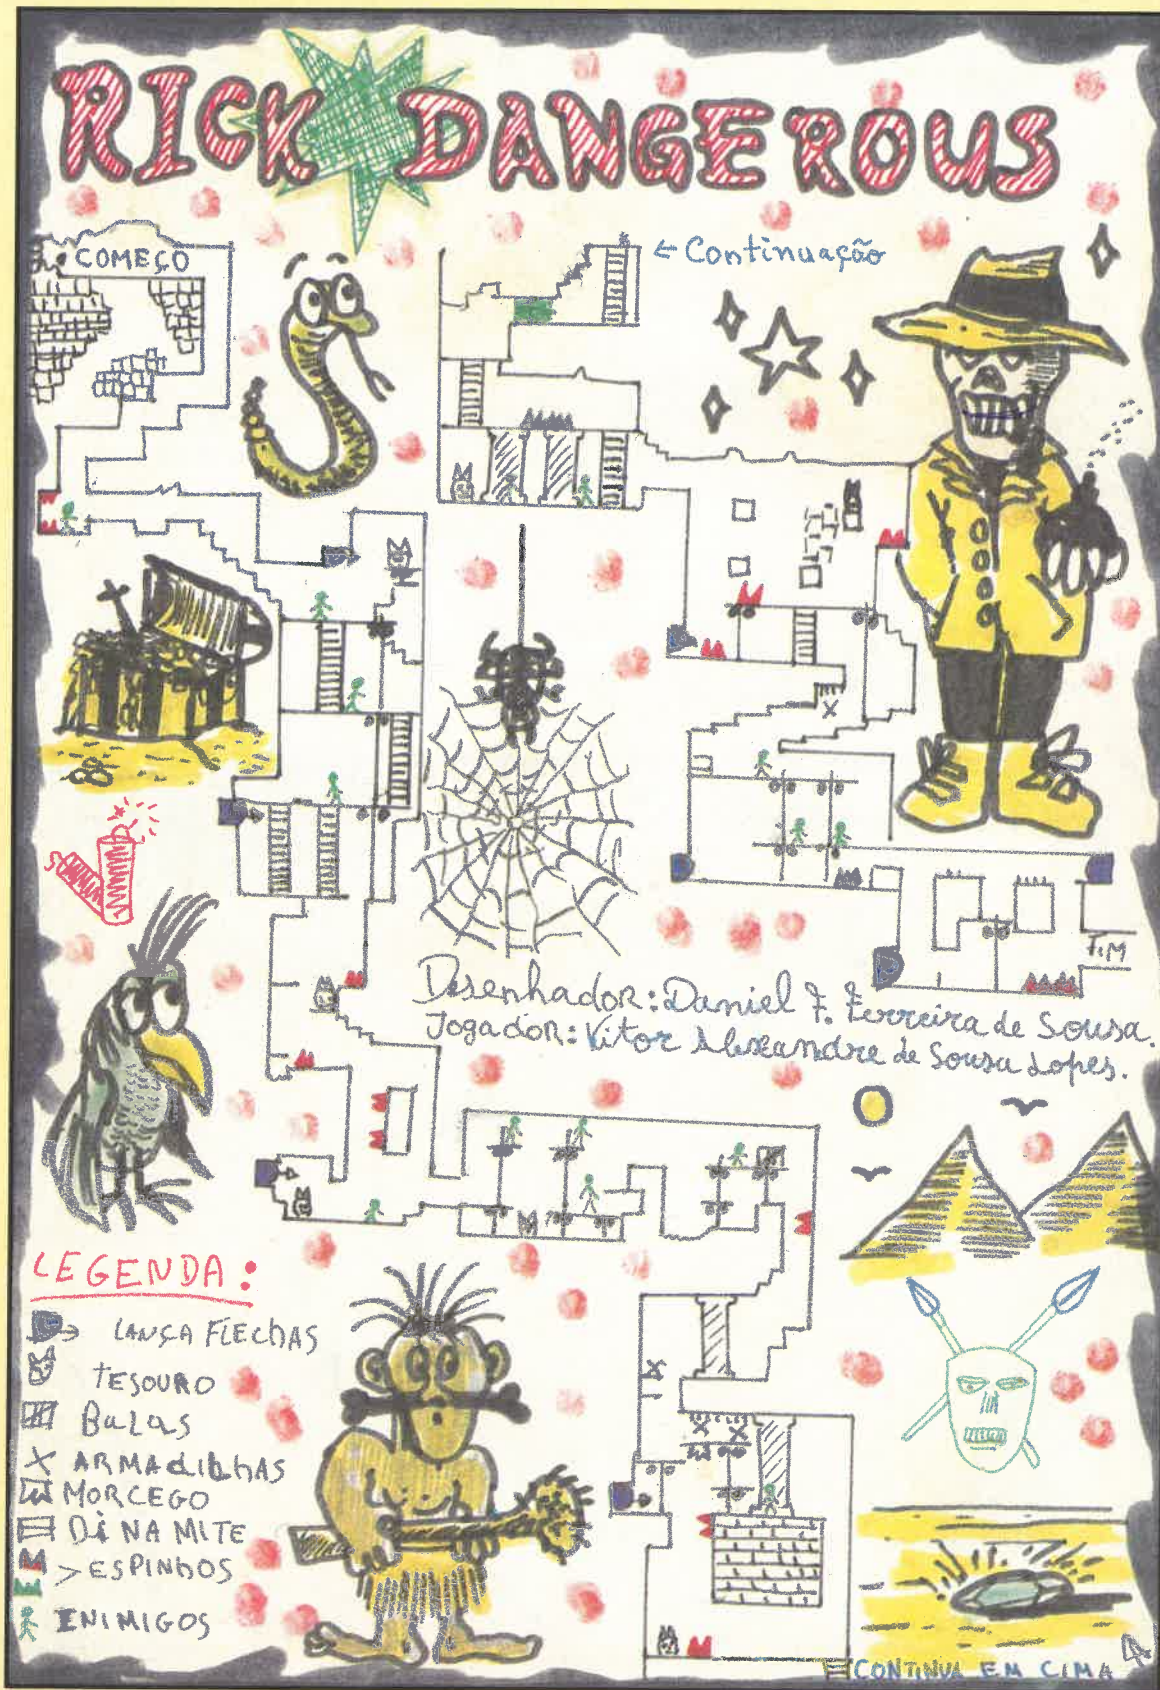 RICK DANGEROUS
COMEÇO
← Continuação
FIM
Desenhador: Daniel F. Ferreira de Sousa.
Jogador: Vitor Alexandre de Sousa Lopes.
LEGENDA:
LANÇA FLECHAS
TESOURO
BALAS
X ARMADILHAS
MORCEGO
DINAMITE
> ESPINHOS
ENIMIGOS
CONTINUA EM CIMA